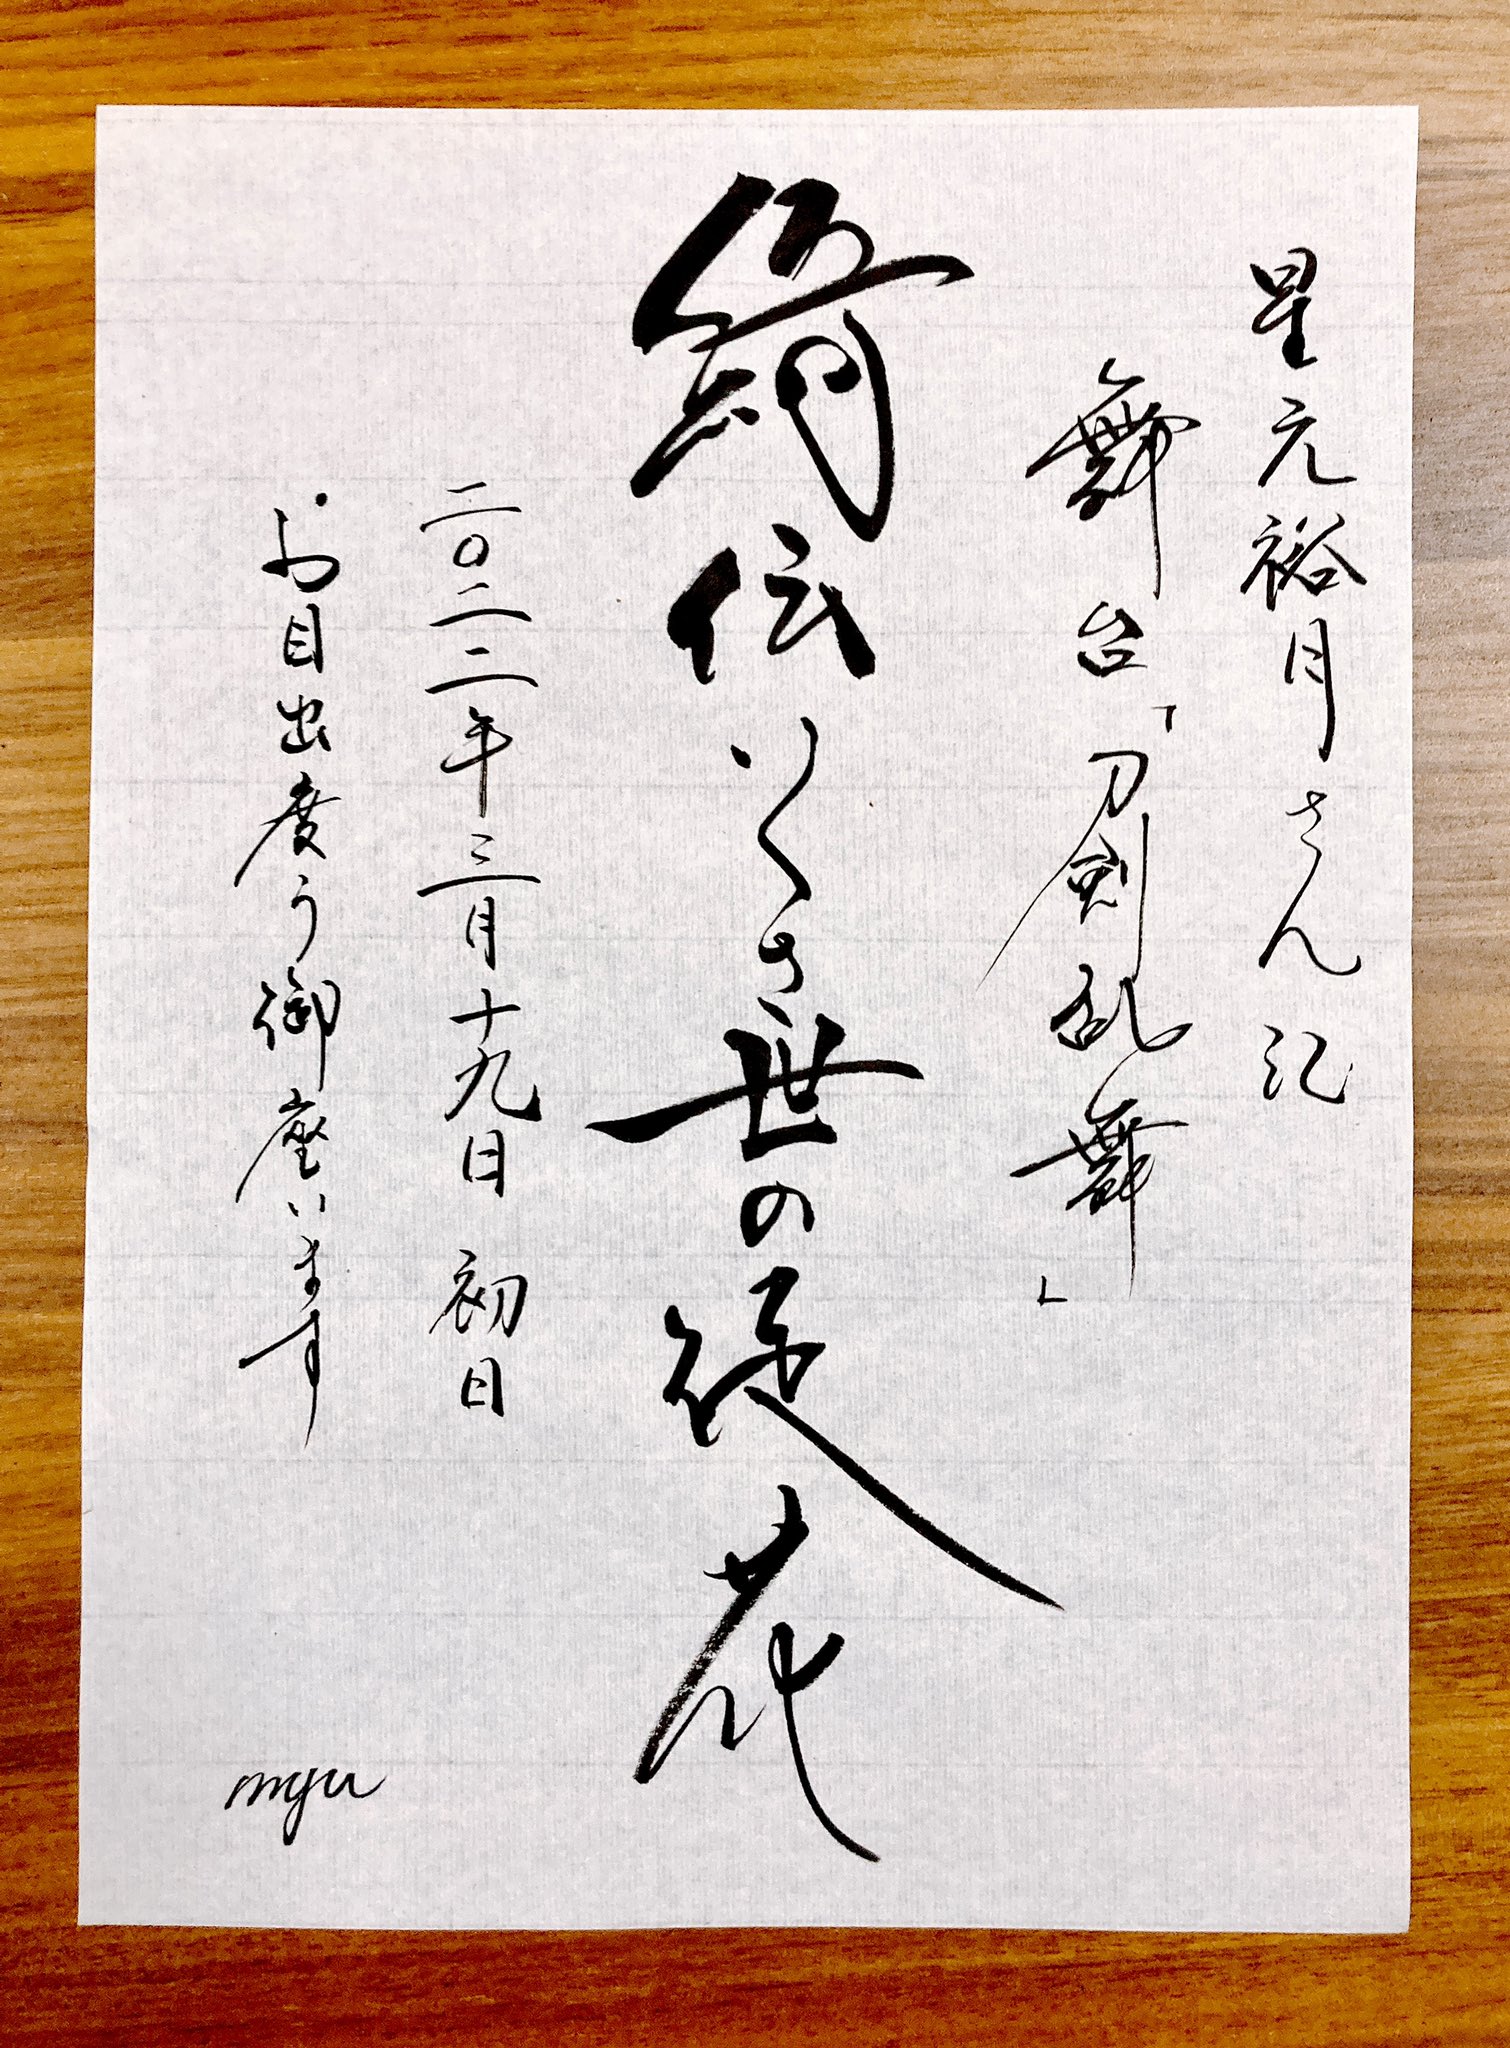 星元裕月さん江
舞台「刀剣乱舞」
綺伝いくさ世の徒花
二〇二二年三月十九日 初日
お目出度う御座います
myu